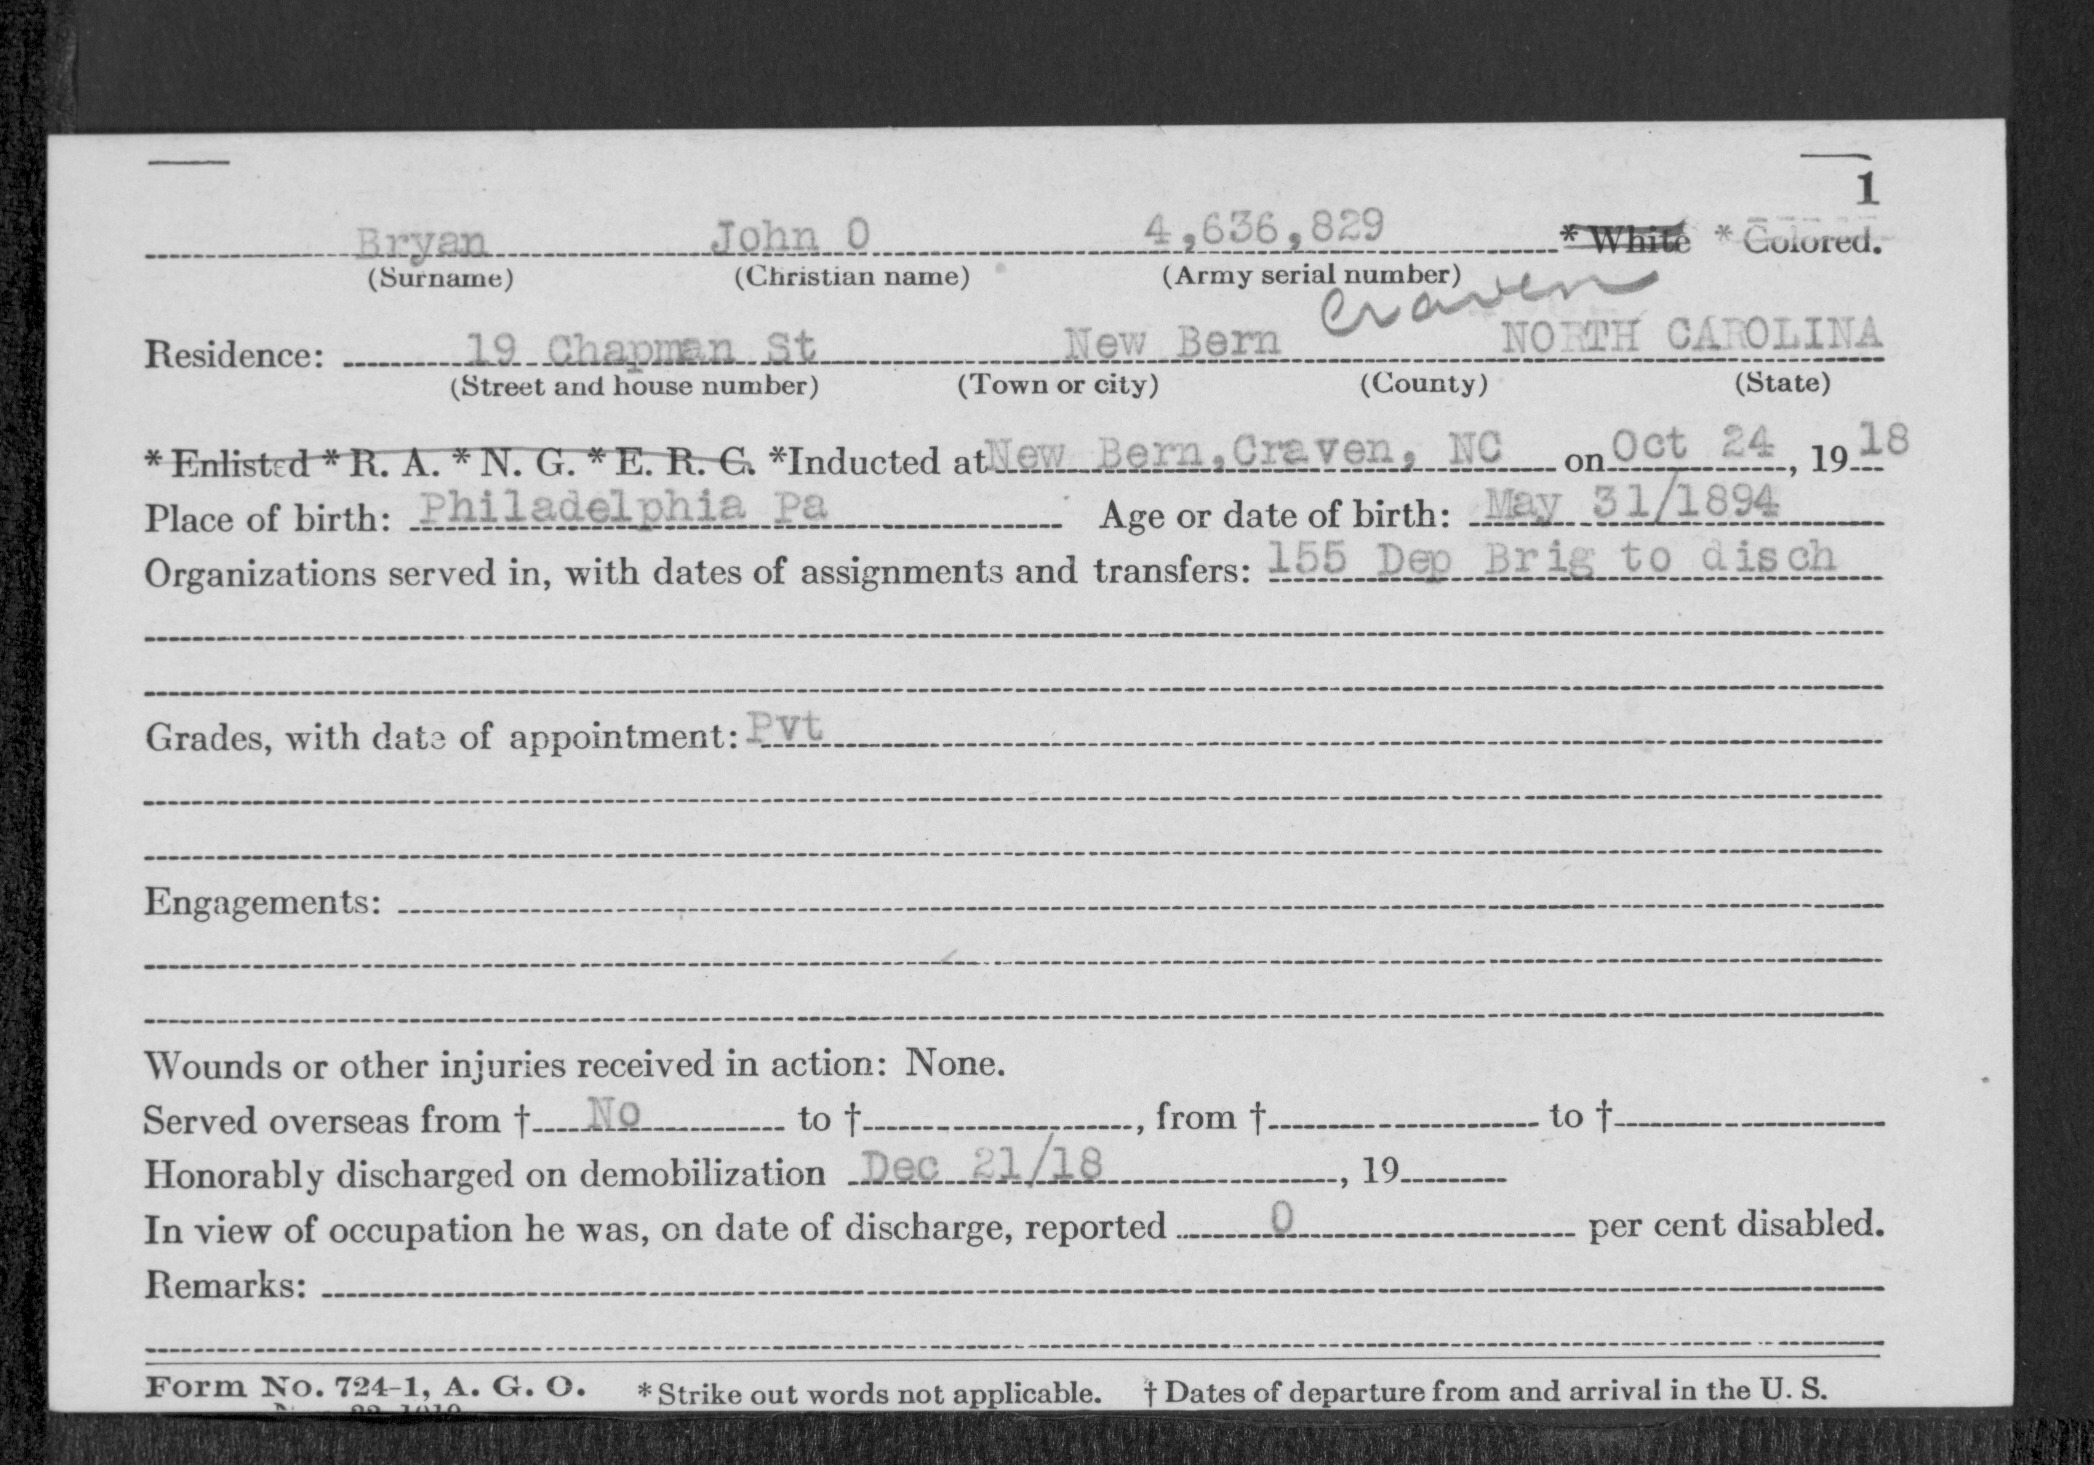 1
Bryan John O 4,636,829 * White * Colored.
(Surname) (Christian name) (Army serial number)
Craven
Residence: 19 Chapman St New Bern NORTH CAROLINA
(Street and house number) (Town or city) (County) (State)
* Enlisted * R. A. * N. G. * E. R. C. *Inducted at New Bern, Craven, NC on Oct 24, 1918
Place of birth: Philadelphia Pa Age or date of birth: May 31/1894
Organizations served in, with dates of assignments and transfers: 155 Dep Brig to disch
Grades, with date of appointment: Pvt
Engagements:
Wounds or other injuries received in action: None.
Served overseas from † No to †, from † to †
Honorably discharged on demobilization Dec 21/18, 19
In view of occupation he was, on date of discharge, reported 0 per cent disabled.
Remarks:
Form No. 724-1, A. G. O. * Strike out words not applicable. † Dates of departure from and arrival in the U. S.